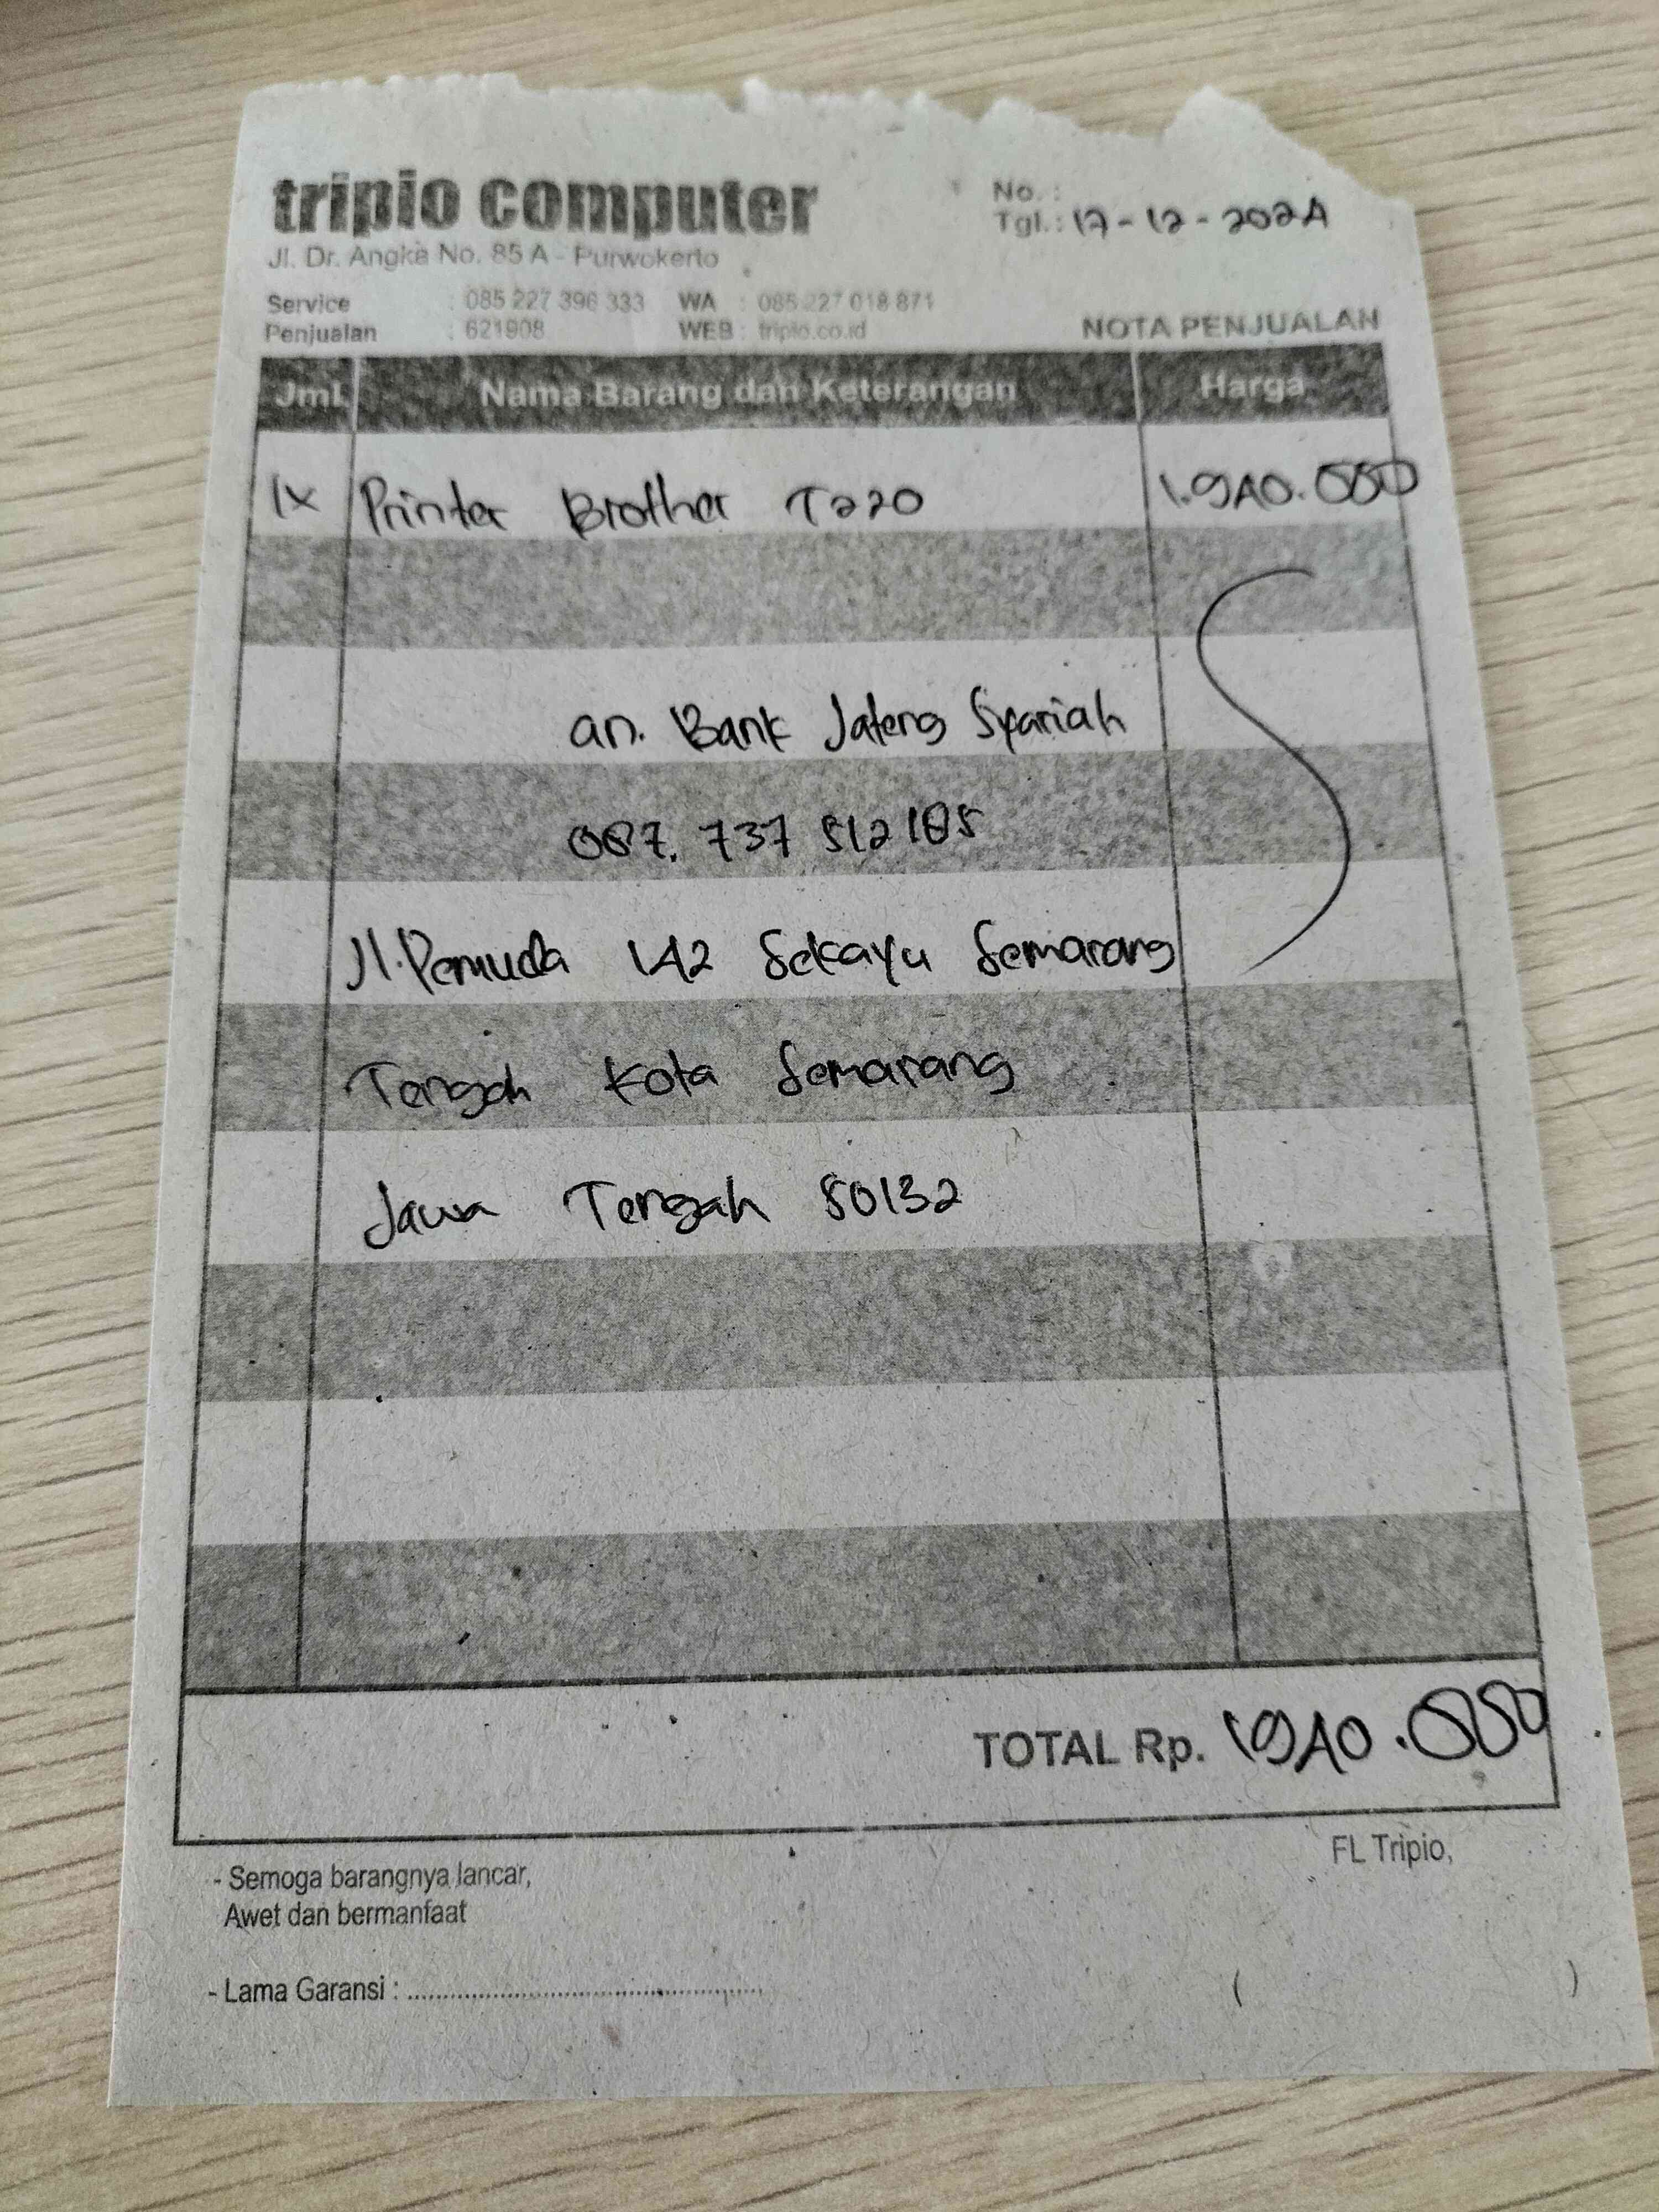 tripio computer
Jl. Dr. Angka No. 85 A - Purwokerto
No. :
Tgl. : 17-12-2024
Service : 085 227 396 333 WA : 085 227 018 871
Penjualan : 621908 WEB : tripio.co.id
NOTA PENJUALAN
Jml. Nama Barang dan Keterangan Harga
1x Printer Brother T220 1.940.000
an. Bank Jateng Syariah
087. 737 512 185
Jl. Pemuda 142 Sekayu Semarang
Tengah Kota Semarang
Jawa Tengah 50132
TOTAL Rp. 1940.000
FL Tripio,
- Semoga barangnya lancar,
Awet dan bermanfaat
- Lama Garansi : ..........
( )